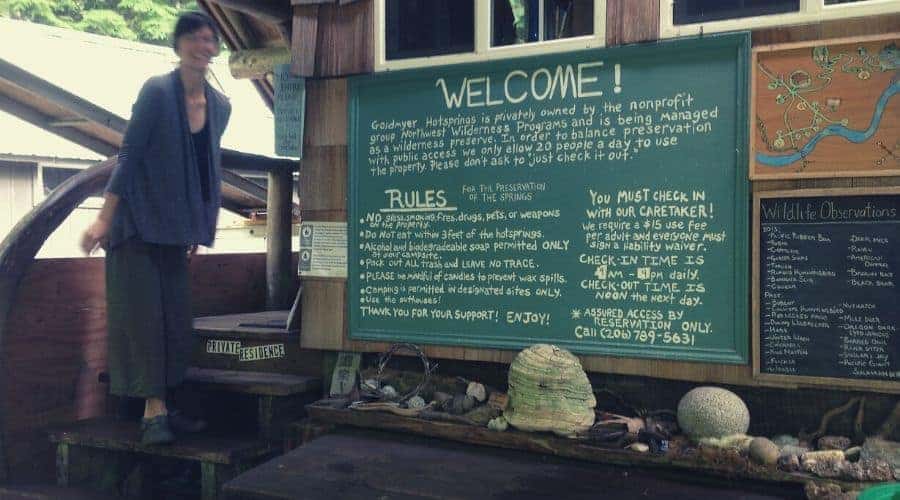 WELCOME!
Goldmyer Hotsprings is privately owned by the nonprofit
group Northwest Wilderness Programs and is being managed
as a wilderness preserve. In order to balance preservation
with public access we only allow 20 people a day to use
the property. Please don't ask to "just check it out."
RULES
FOR THE PRESERVATION
OF THE SPRINGS
• NO glass, smoking, fires, drugs, pets, or weapons
on the property.
• Do NOT eat within 3 feet of the hotsprings.
• Alcohol and biodegradable soap permitted ONLY
at your campsite.
• Pack out ALL trash and LEAVE NO TRACE.
• PLEASE be mindful of candles to prevent wax spills.
• Camping is permitted in designated sites ONLY.
• Use the outhouses!
THANK YOU FOR YOUR SUPPORT! ENJOY!
YOU MUST CHECK IN
WITH OUR CARETAKER!
We require a $15 use fee
per adult and everyone must
sign a liability waiver.
CHECK-IN TIME IS
9AM - PM daily.
CHECK-OUT TIME IS
NOON the next day.
* ASSURED ACCESS BY
RESERVATION ONLY.
Call (206) 789-5631
PRIVATE RESIDENCE
Wildlife Observations
2013:
- Cougar
- Deer Mice
- Raven
- American
- Black Bear
Past:
- Bobcat
- Flicker
- Nuthatch
- Mule Deer
- Barred Owl
- River Otter
- Pacific